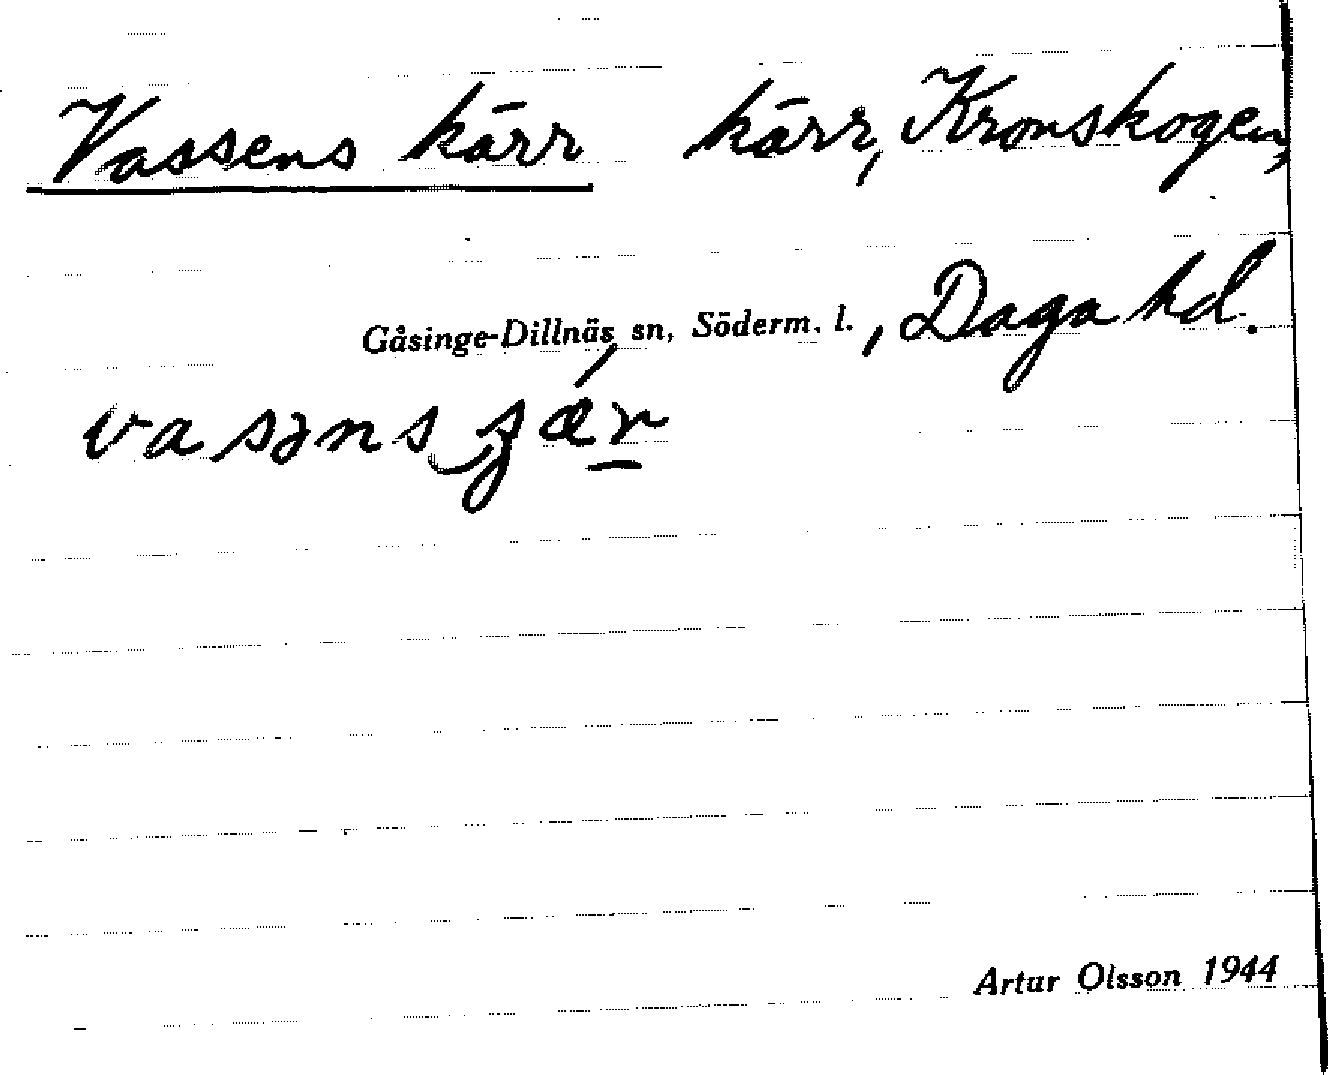 Vassens kärr kärr, Kronskogen,
Gåsinge-Dillnäs sn, Söderm. l., Daga hd.
Artur Olsson 1944